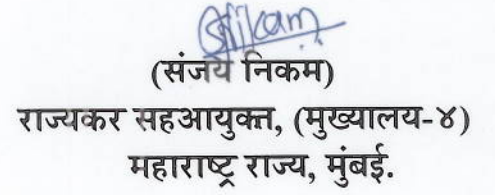 (संजय निकम)
राज्यकर सहआयुक्त, (मुख्यालय-४)
महाराष्ट्र राज्य, मुंबई.